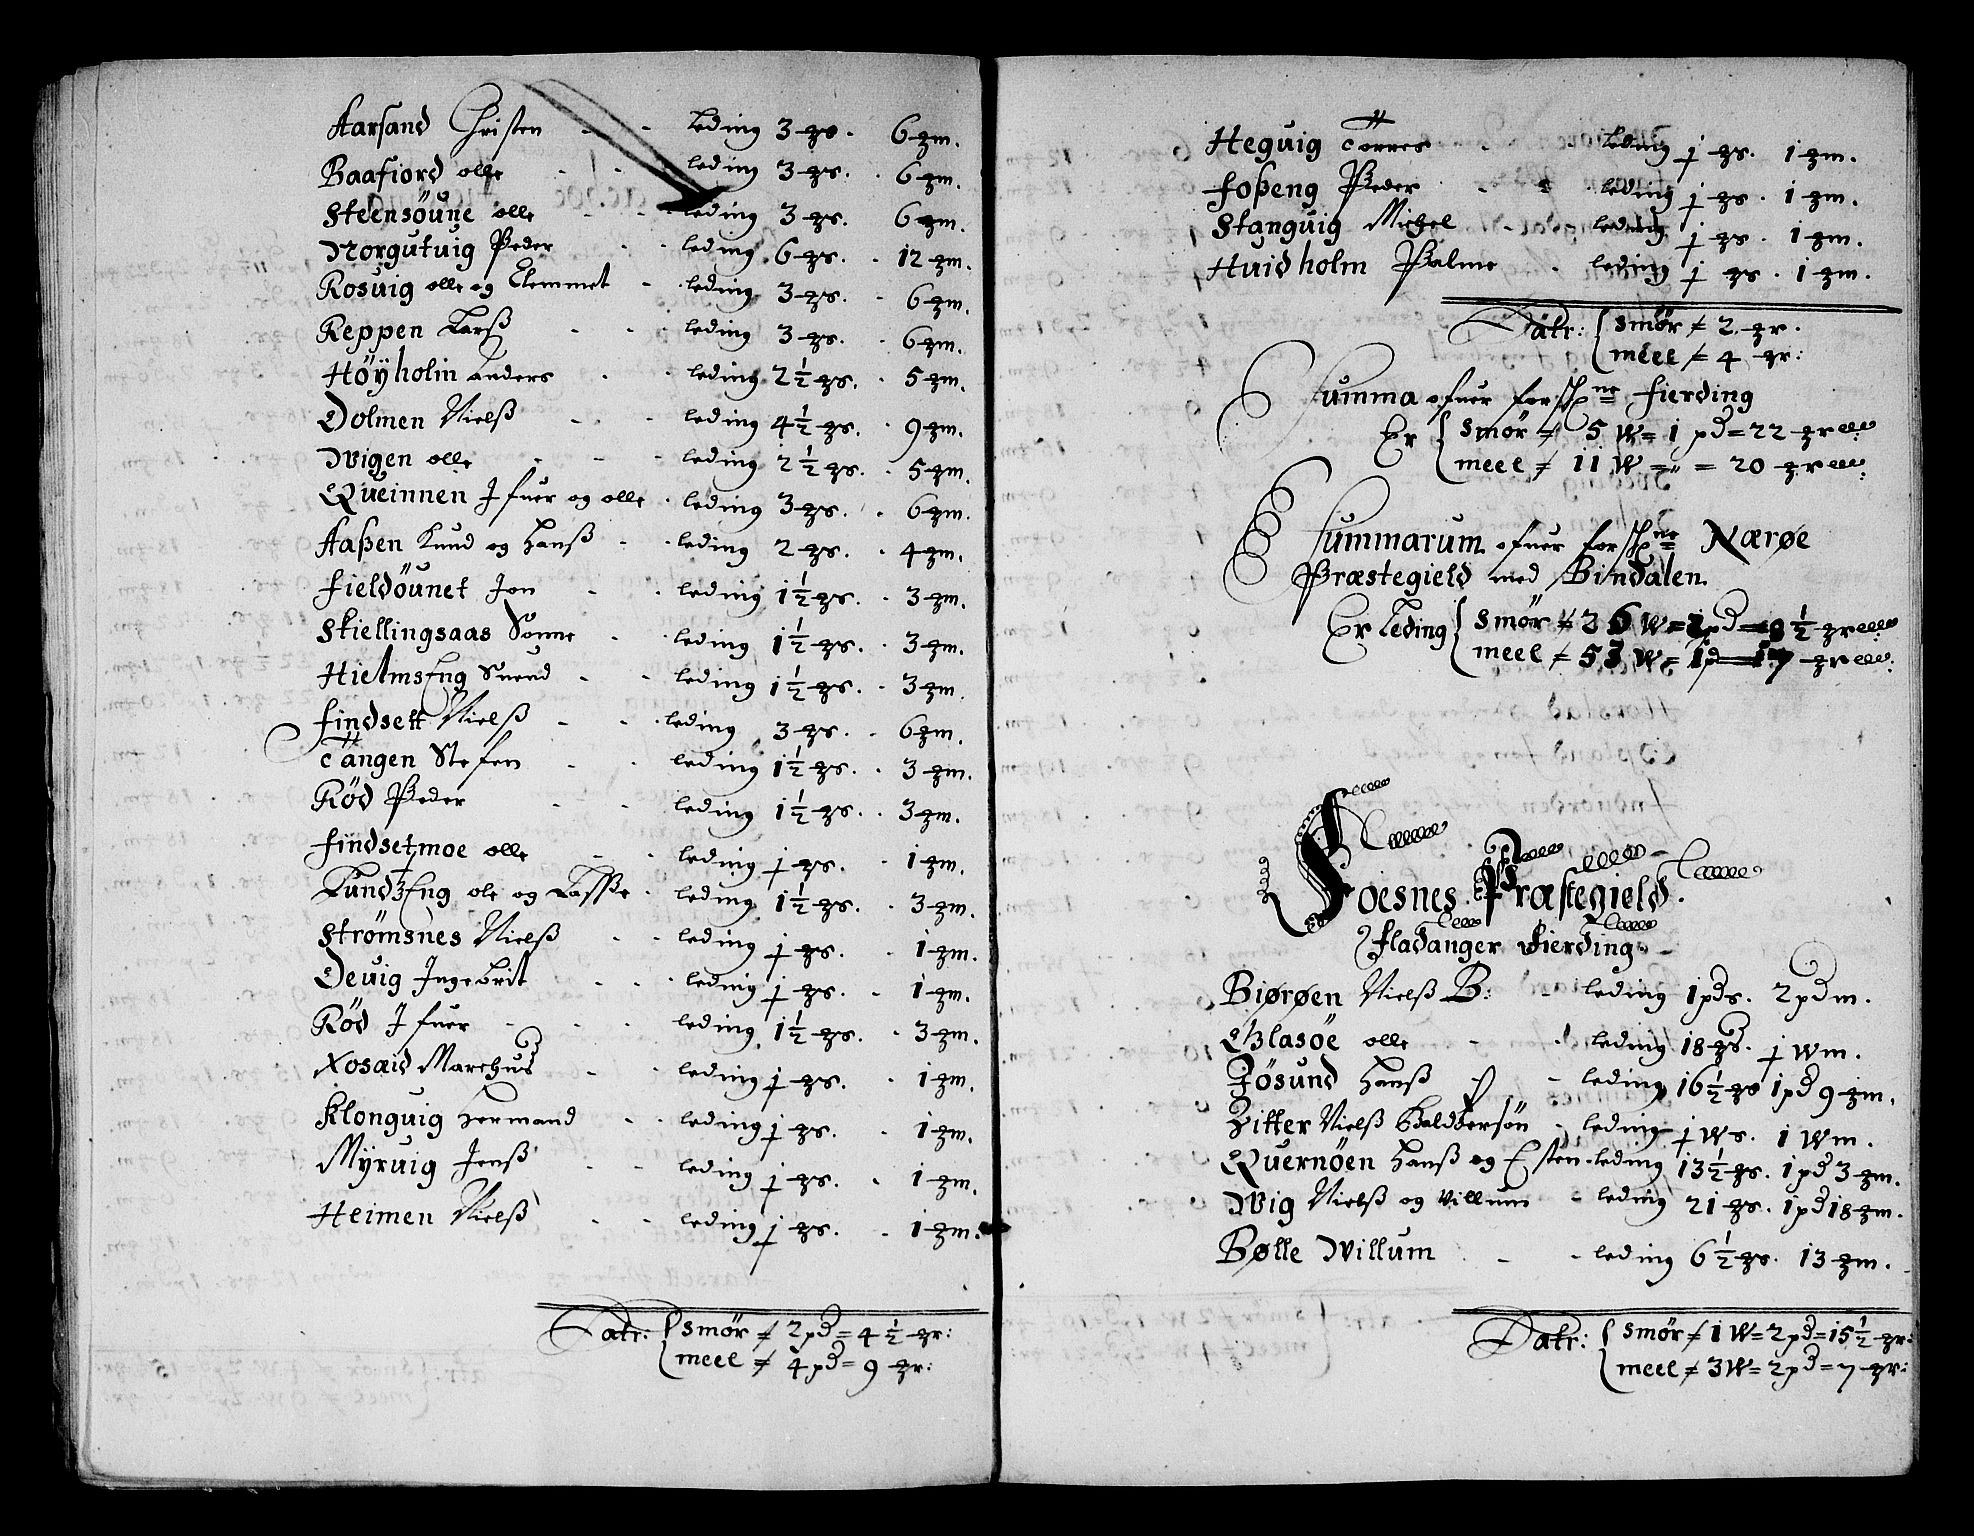 Aarsand Christen - - Leding 3 gs. 6 gm.
Baafiord olle - - leding 3 gs. 6 gm.
Steensöune olle - - leding 3 gs. 6 gm.
Norgutuig Peder - - leding 6 gs. 12 gm.
Rosuig olle og Clemmet - leding 3 gs. 6 gm.
Reppen Larß - - leding 3 gs. 6 gm.
Höyholm Anders - - leding 2½ gs. 5 gm.
Dolmen Nielß - - leding 4½ gs. 9 gm.
Wigen olle - - leding 2½ gs. 5 gm.
Queinnen Ifuer og olle - leding 3 gs. 6 gm.
Aaßen Knud og Hanß - leding 2 gs. 4 gm.
Fieldöunet Jon - - leding 1½ gs. 3 gm.
Skiellingsaas Sonne - leding 1½ gs. 3 gm.
HielmsEng Suend - - leding 1½ gs. 3 gm.
Findsett Nielß - - leding 3 gs. 6 gm.
Tangen Stefen - - leding 1½ gs. 3 gm.
Röd Peder - - leding 1½ gs. 3 gm.
Findsetmoe olle - - leding j gs. 1 gm.
LundzEng ole og Lasse - leding 1½ gs. 3 gm.
Strömsnes Nielß - - leding j gs. 1 gm.
Deuig Ingebrit - - leding j gs. 1 gm.
Röd Ifuer - - leding 1½ gs. 3 gm.
Marchus - - leding j gs. 1 gm.
Klonguig Hermand - - leding j gs. 1 gm.
Myruig Jenß - - leding j gs. 1 gm.
Heimen Nielß - - leding j gs. 1 gm.
Latr: smör ≠ 2 pd = 4½ gr:
meel ≠ 4 pd = 9 gr:
Heguig Torres - - leding j gs. 1 gm.
Foßeng Peder - - leding j gs. 1 gm.
Stanguig Michel - - leding j gs. 1 gm.
Huidholm Palme - leding j gs. 1 gm.
Latr: smör ≠ 2 gr.
meel ≠ 4 gr:
Summa ofuer forschne fierding
Er smör ≠ 5 W = 1 pd = 22 gr
meel ≠ 11 W = " = 20 gr
Summarum ofuer forschne Nærøe
Præstegield med Bindalen
Er Leding smör ≠ 26 W = pd = 8½ gr
meel ≠ 53 W = 1 pd = 17 gr
Foesnes Præstegield.
Fladanger Fierding
Biørøen Nielß B: - leding 1 pd s. 2 pd m.
Glasöe olle - - leding 18 gs. j W m.
Jösund Hanß - leding 16½ gs 1 pd 9 gm.
Zitter Nielß Baldzersön - leding j W s. 1 W m.
Quernöen Hanß og Esten - leding 13½ gs. 1 pd 3 gm.
Wig Nielß og Villum - leding 21 gs. 1 pd 18 gm.
Bølle Willum - - leding 6½ gs. 13 gm.
Latr: smör ≠ 1 W = 2 pd = 15½ gr:
meel ≠ 3 W = 2 pd = 7 gr: